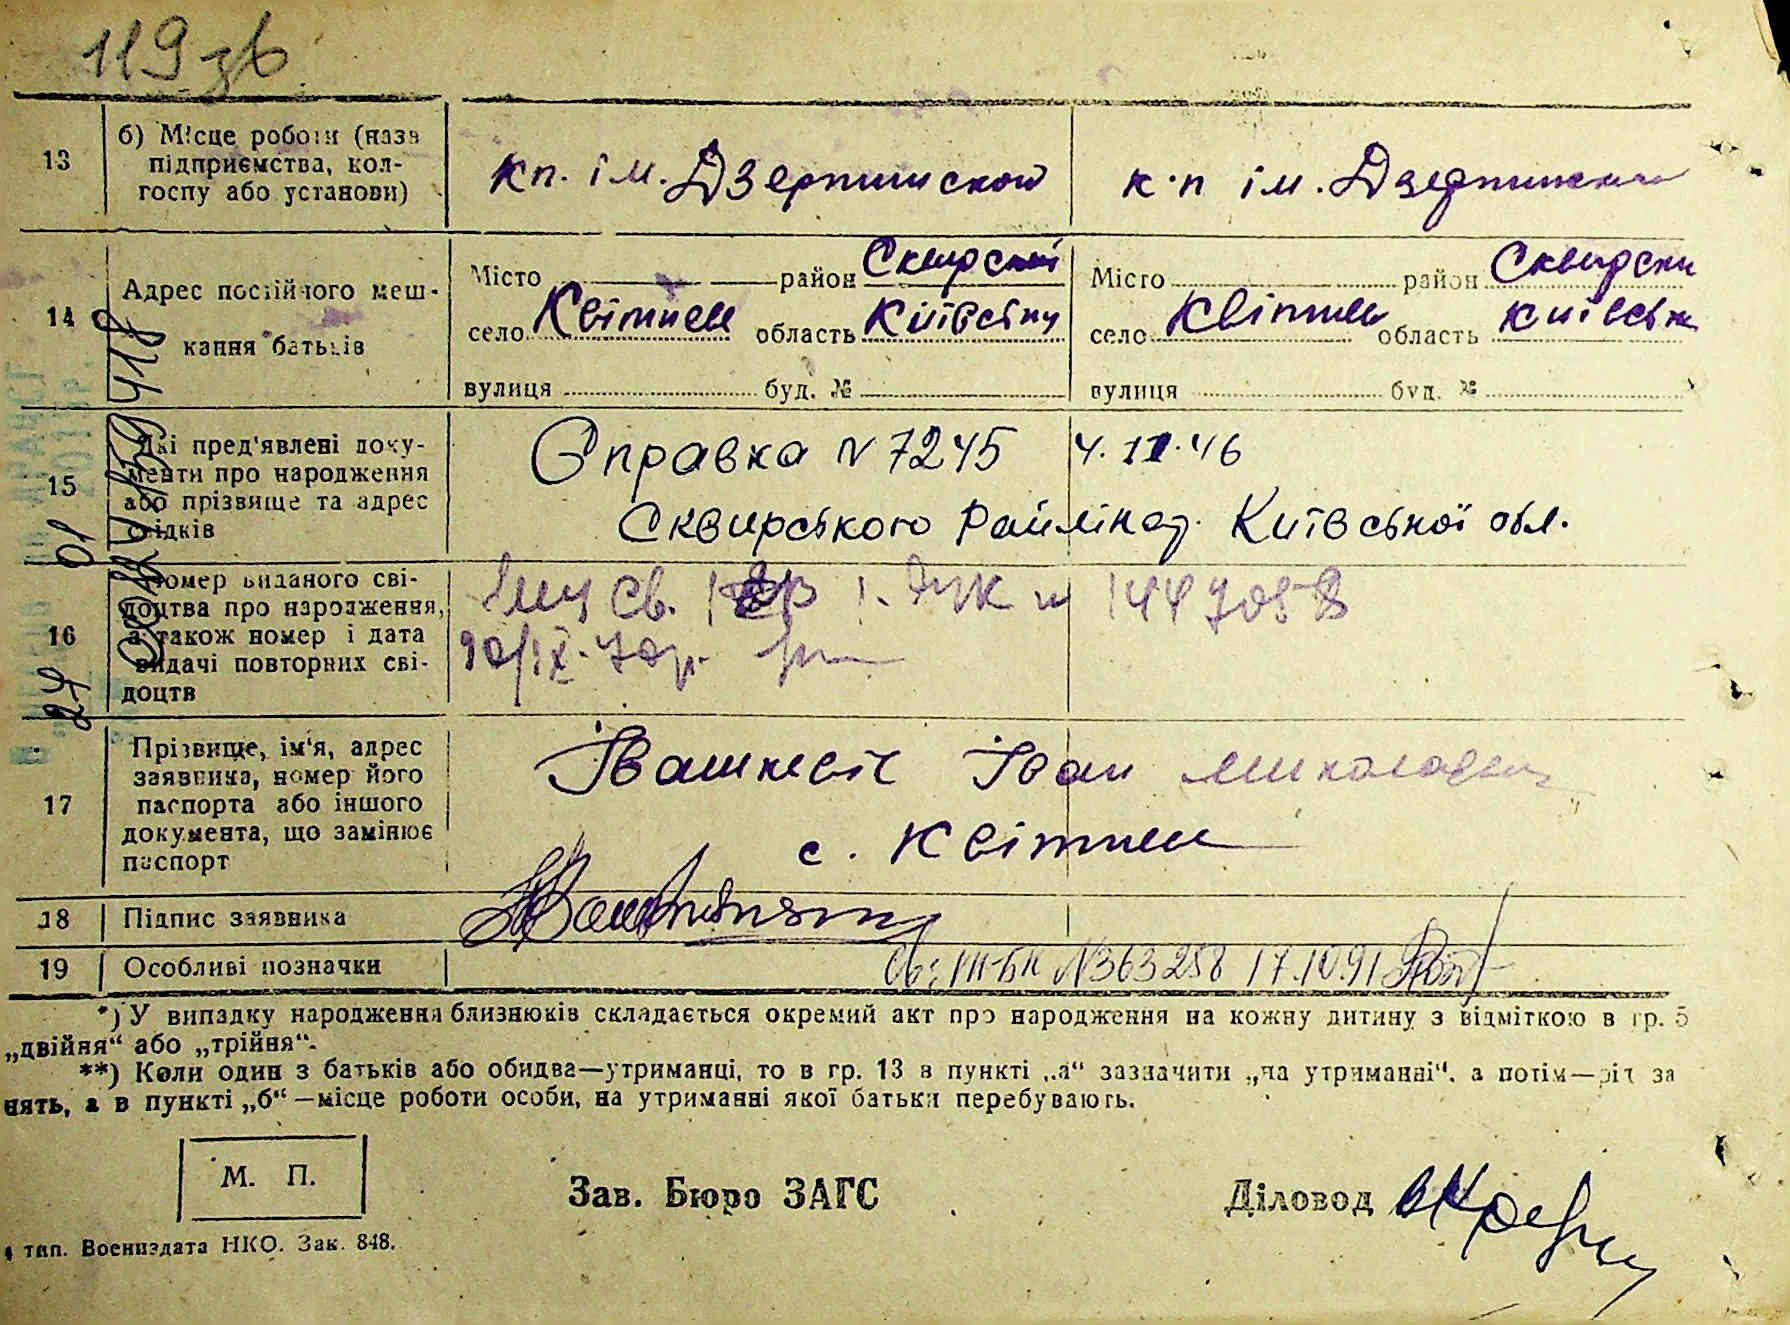 119 зв
13
б) Місце роботи (назв
підприємства, кол-
госпу або установи)
кп. ім. Дзержинского
к.п ім. Дзержинского
14
Адрес постійного меш-
кання батьків
Місто район Сквирский
село Квітки область Київську
вулиця буд. №
Місто район Сквирски
село Квітки область Київськ
вулиця буд. №
15
Які пред'явлені доку-
менти про народження
або прізвище та адрес
свідків
Справка № 7245 4.11.46
Сквирського Райлікар. Київської обл.
16
Номер виданого сві-
доцтва про народження,
а також номер і дата
видачі повторних сві-
доцтв
св. 1447058
17
Прізвище, ім'я, адрес
заявника, номер його
паспорта або іншого
документа, що замінює
паспорт
Івашкевіч Іван Миколаєвич
с. Квітки
18
Підпис заявника
19
Особливі позначки
Св: III-БК №363258 17.10.91
*) У випадку народження близнюків складається окремий акт про народження на кожну дитину з відміткою в гр. 5
„двійня“ або „трійня“.
**) Коли один з батьків або обидва—утриманці, то в гр. 13 в пункті „а“ зазначити „на утриманні“, а потім—рід за
нять, а в пункті „б“—місце роботи особи, на утриманні якої батьки перебувають.
М. П.
Зав. Бюро ЗАГС
Діловод
4 тип. Воениздата НКО. Зак. 848.